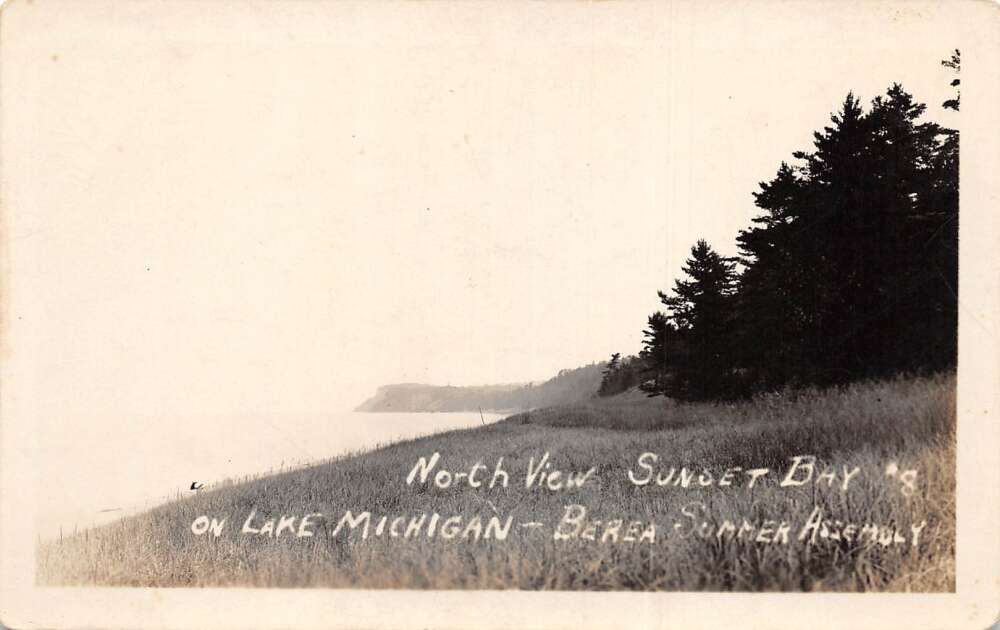 North View Sunset Bay #8
on Lake Michigan - Berea Summer Assembly